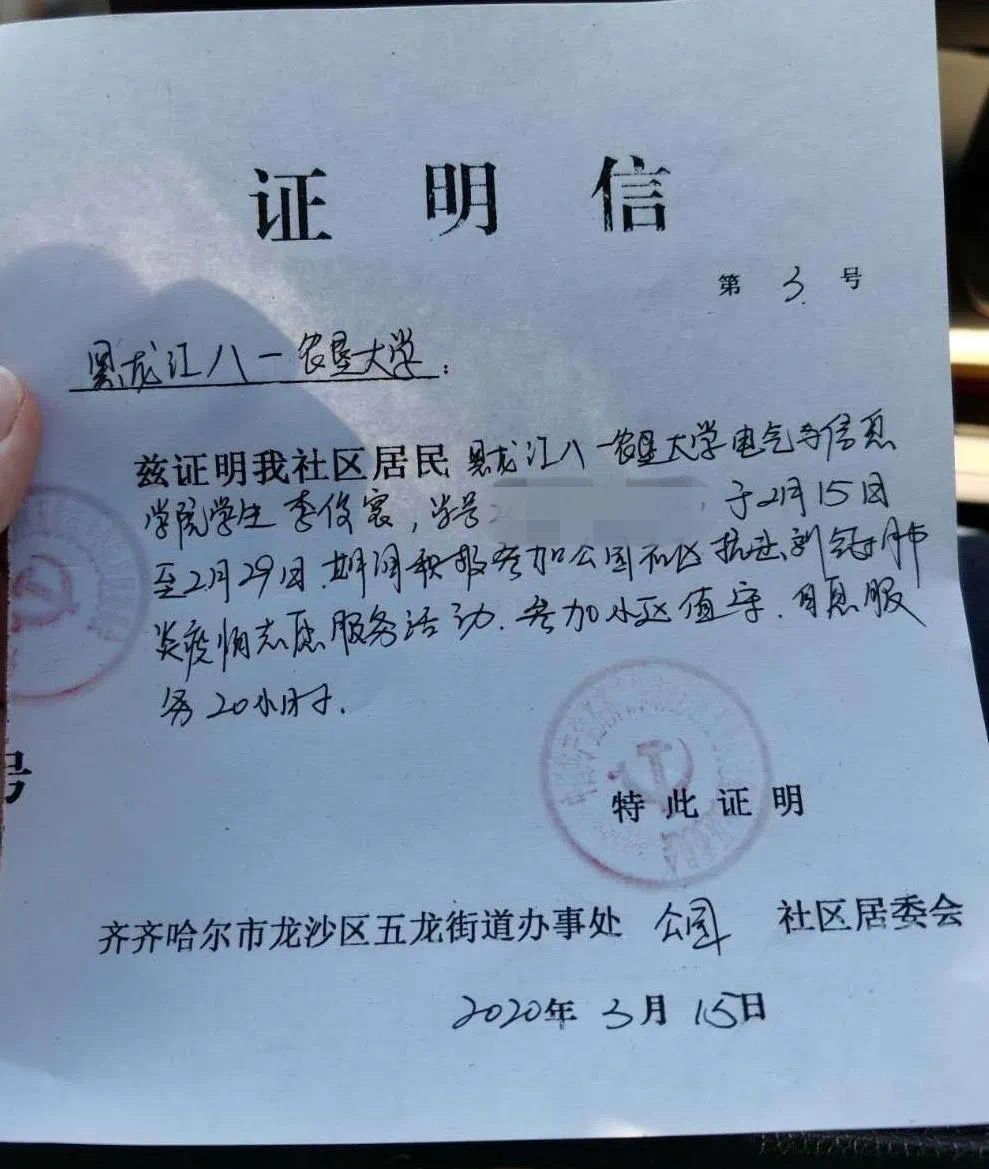 证明信
第 3 号
黑龙江八一农垦大学:
兹证明我社区居民黑龙江八一农垦大学电气与信息
学院学生李俊寰,学号2 ,于2月15日
至2月29日期间积极参加公园社区抗击新冠肺
炎疫情志愿服务活动.参加小区值守.自愿服
务20小时.
号
特此证明
齐齐哈尔市龙沙区五龙街道办事处 公园 社区居委会
2020年 3月 15日